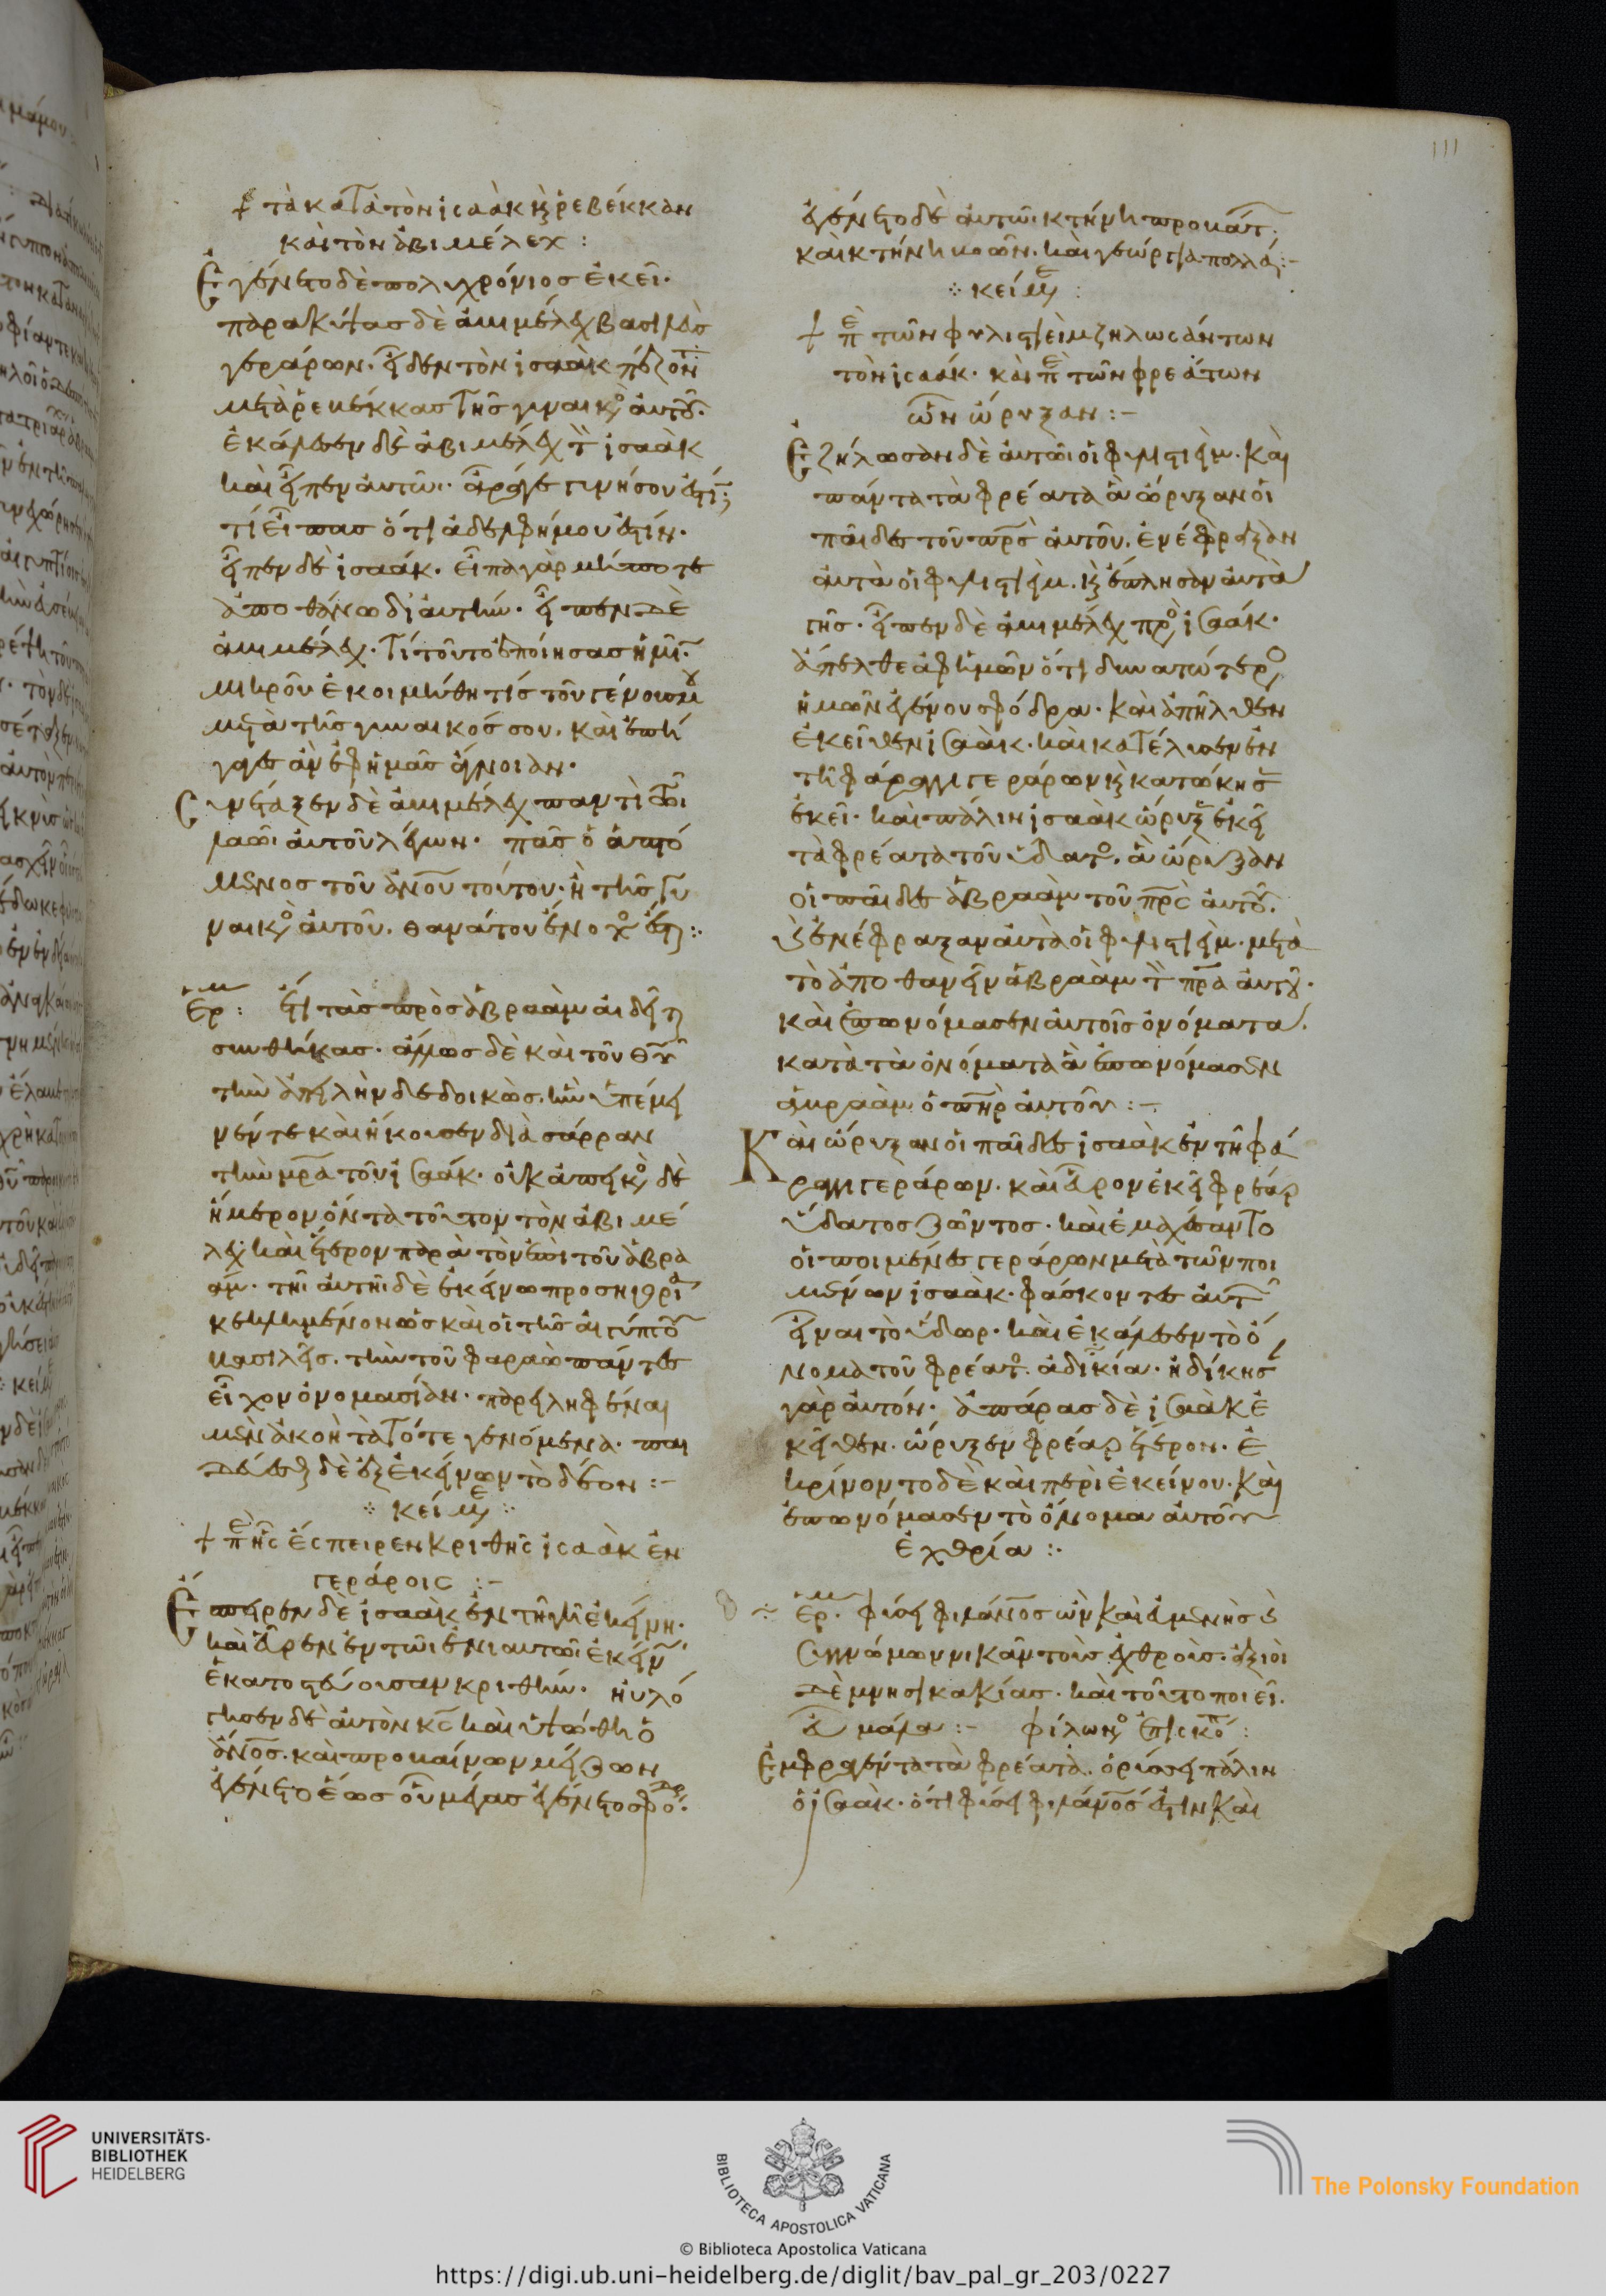 111
† τὰ κατὰ τὸν ἰσαὰκ κ ῥεβέκκαν
καὶ τὸν ἀβιμέλεχ :
Ἐγένετο δὲ πολυχρόνιος ἐκεῖ·
παρακύψας δὲ ἀβιμέλεχ βασιλεὺς
γεράρων. εἶδεν τὸν ἰσαὰκ παίζοντ
μετὰ ρεβέκκας τῆς γυναικὸ αὐτοῦ.
ἐκάλεσεν δὲ ἀβιμέλεχ τ ἰσαὰκ
καὶ εἶπεν αὐτῶ. ἆρά γε γυνή σου ἐστί;
τί εἶπας ὅτι ἀδελφή μου ἐστίν.
εἶπεν δὲ ἰσαάκ. εἶπα γὰρ μήποτε
ἀποθάνω δι αὐτήν. εἶπεν δὲ
ἀβιμέλεχ. τί τοῦτο ἐποίησας ἡμῖ.
μικροῦ ἐκοιμήθη τίς τοῦ γένους μου
μετὰ τῆς γυναικός σου. καὶ ἐπή
γαγες ἂν ἐφ ἡμᾶς ἄγνοιαν.
Συνέταξεν δὲ ἀβιμέλεχ παντὶ τῶι
λαῶι αὐτοῦ λέγων. πᾶς ὁ ἁπτό
μενος τοῦ ἀνου τούτου. ἢ τῆς γυ
ναικὸ αὐτοῦ. θανάτου ἔνοχο ἔσται :
ἐπὶ τὰς πρὸς ἀβραὰμ αἰδεῖται
συνθήκας. ἄλλως δὲ καὶ τοῦ θυ
τὴν ἀπειλὴν δεδοικὼς. ἣν ὑπέμει
νέν τε καὶ ἤκουσεν διὰ σάρραν
τὴν μρα τοῦ ἰσαάκ. οὐκ ἀπεικὸ δὲ
ἥμερον ὄντα τοῦτον τὸν ἀβιμέ
λεχ καὶ ἕτερον παρὰ τὸν ἐπὶ τοῦ ἀβρα
άμ. τῆι αὐτῆι δὲ ἐκείνω προσηγορί
κεκλημένον ὡς καὶ οἱ τῆς αἰγύπτου
βασιλεῖς. τὴν τοῦ φαραὼ πάντες
εἶχον ὀνομασίαν. παρειληφέναι
μὲν ἀκοῆ τὰ τότε γενόμενα. παι
δεύεσθαι δὲ ἐξ ἐκείνων τὸ δέον :-
κείμε
† π ῆς ἔσπειρεν κριθῆς ἰσαὰκ ἐν
γεράροις :-
Ἔσπειρεν δὲ ἰσαὰκ ἐν τῆ γῆ ἐκείνη.
καὶ εὗρεν ἐν τῶι ἐνιαυτῶι ἐκείν
ἑκατοστεύουσαν κριθήν. ηυλό
γησεν δὲ αὐτὸν κς καὶ ὑψώθη ὁ
ἀνος. καὶ προβαίνων μείζων
ἐγένετο ἕως οὗ μέγας ἐγένετο σφόδρ.
ἐγένετο δὲ αὐτῶι κτήνη προβάτ.
καὶ κτήνη βοῶν. καὶ γεώργια πολλά :-
κείμε :
† π τῶν φυλιστιεὶμ ζηλωσάντων
τὸν ἰσαάκ. καὶ π τῶν φρεάτων
ὧν ὤρυξαν :-
Ἐζήλωσαν δὲ αὐτὸν οἱ φυλιστιείμ. καὶ
πάντα τὰ φρέατα ἃ ὤρυξαν οἱ
παῖδες τοῦ πρς αὐτοῦ. ἐνέφραξαν
αὐτὰ οἱ φυλιστιείμ. κ ἔπλησαν αὐτὰ
γῆς. εἶπεν δὲ ἀβιμέλεχ πρὸ ἰσαάκ.
ἄπελθε ἀφ ἡμῶν ὅτι δυνατώτερο
ἡμῶν ἐγένου σφόδρα. καὶ ἀπῆλθεν
ἐκεῖθεν ἰσαάκ. καὶ κατέλυσεν ἐν
τῆ φάραγγι γεράρων κ κατώκησ
ἐκεῖ. καὶ πάλιν ἰσαὰκ ὤρυξ ἐκεῖ
τὰ φρέατα τοῦ ὕδατο. ἃ ὤρυξαν
οἱ παῖδες ἀβραὰμ τοῦ πρς αὐτοῦ.
κ ἐνέφραξαν αὐτὰ οἱ φυλιστιείμ. μετὰ
τὸ ἀποθανεῖν ἀβραὰμ τ πρα αὐτοῦ.
καὶ ἐπωνόμασεν αὐτοῖς ὀνόματα.
κατὰ τὰ ὀνόματα ἃ ἐπωνόμασεν
ἀβραὰμ ὁ πηρ αὐτοῦ :-
Καὶ ὤρυξαν οἱ παῖδες ἰσαὰκ ἐν τῆ φά
ραγγι γεράρων. καὶ εὗρον ἐκεῖ φρέαρ
ὕδατος ζῶντος. καὶ ἐμαχέσαντο
οἱ ποιμένες γεράρων μετὰ τῶν ποι
μένων ἰσαάκ. φάσκοντες αὐτ
εἶναι τὸ ὕδωρ. καὶ ἐκάλεσεν τὸ ὄ
νομα τοῦ φρέατ. ἀδικία. ἠδίκησ
γὰρ αὐτόν. ἀπάρας δὲ ἰσαὰκ ἐ
κεῖθεν. ὤρυξεν φρέαρ ἕτερον. ἐ
κρίνοντο δὲ καὶ περὶ ἐκείνου. καὶ
ἐπωνόμασεν τὸ ὄνομα αὐτοῦ
ἐχθρία :.
φύσει φιλάνος ὢν καὶ εὐμενὴς κ
συγγνώμων νικᾶν τοὺς ἐχθροὺς. ἀξιοὶ
δὲ μνησικακίας. καὶ τοῦτο ποιεῖ.
εὖ μάλα :- φίλων ἐπισκοπ :
Ἐμφραγέντα τὰ φρέατα. ὀρύσσει πάλιν
ὁ ἰσαάκ. ὅτι φύσει φιλάνος ἐστιν καὶ
UNIVERSITÄTS-
BIBLIOTHEK
HEIDELBERG
BIBLIOTECA APOSTOLICA VATICANA
The Polonsky Foundation
© Biblioteca Apostolica Vaticana
https://digi.ub.uni-heidelberg.de/diglit/bav_pal_gr_203/0227